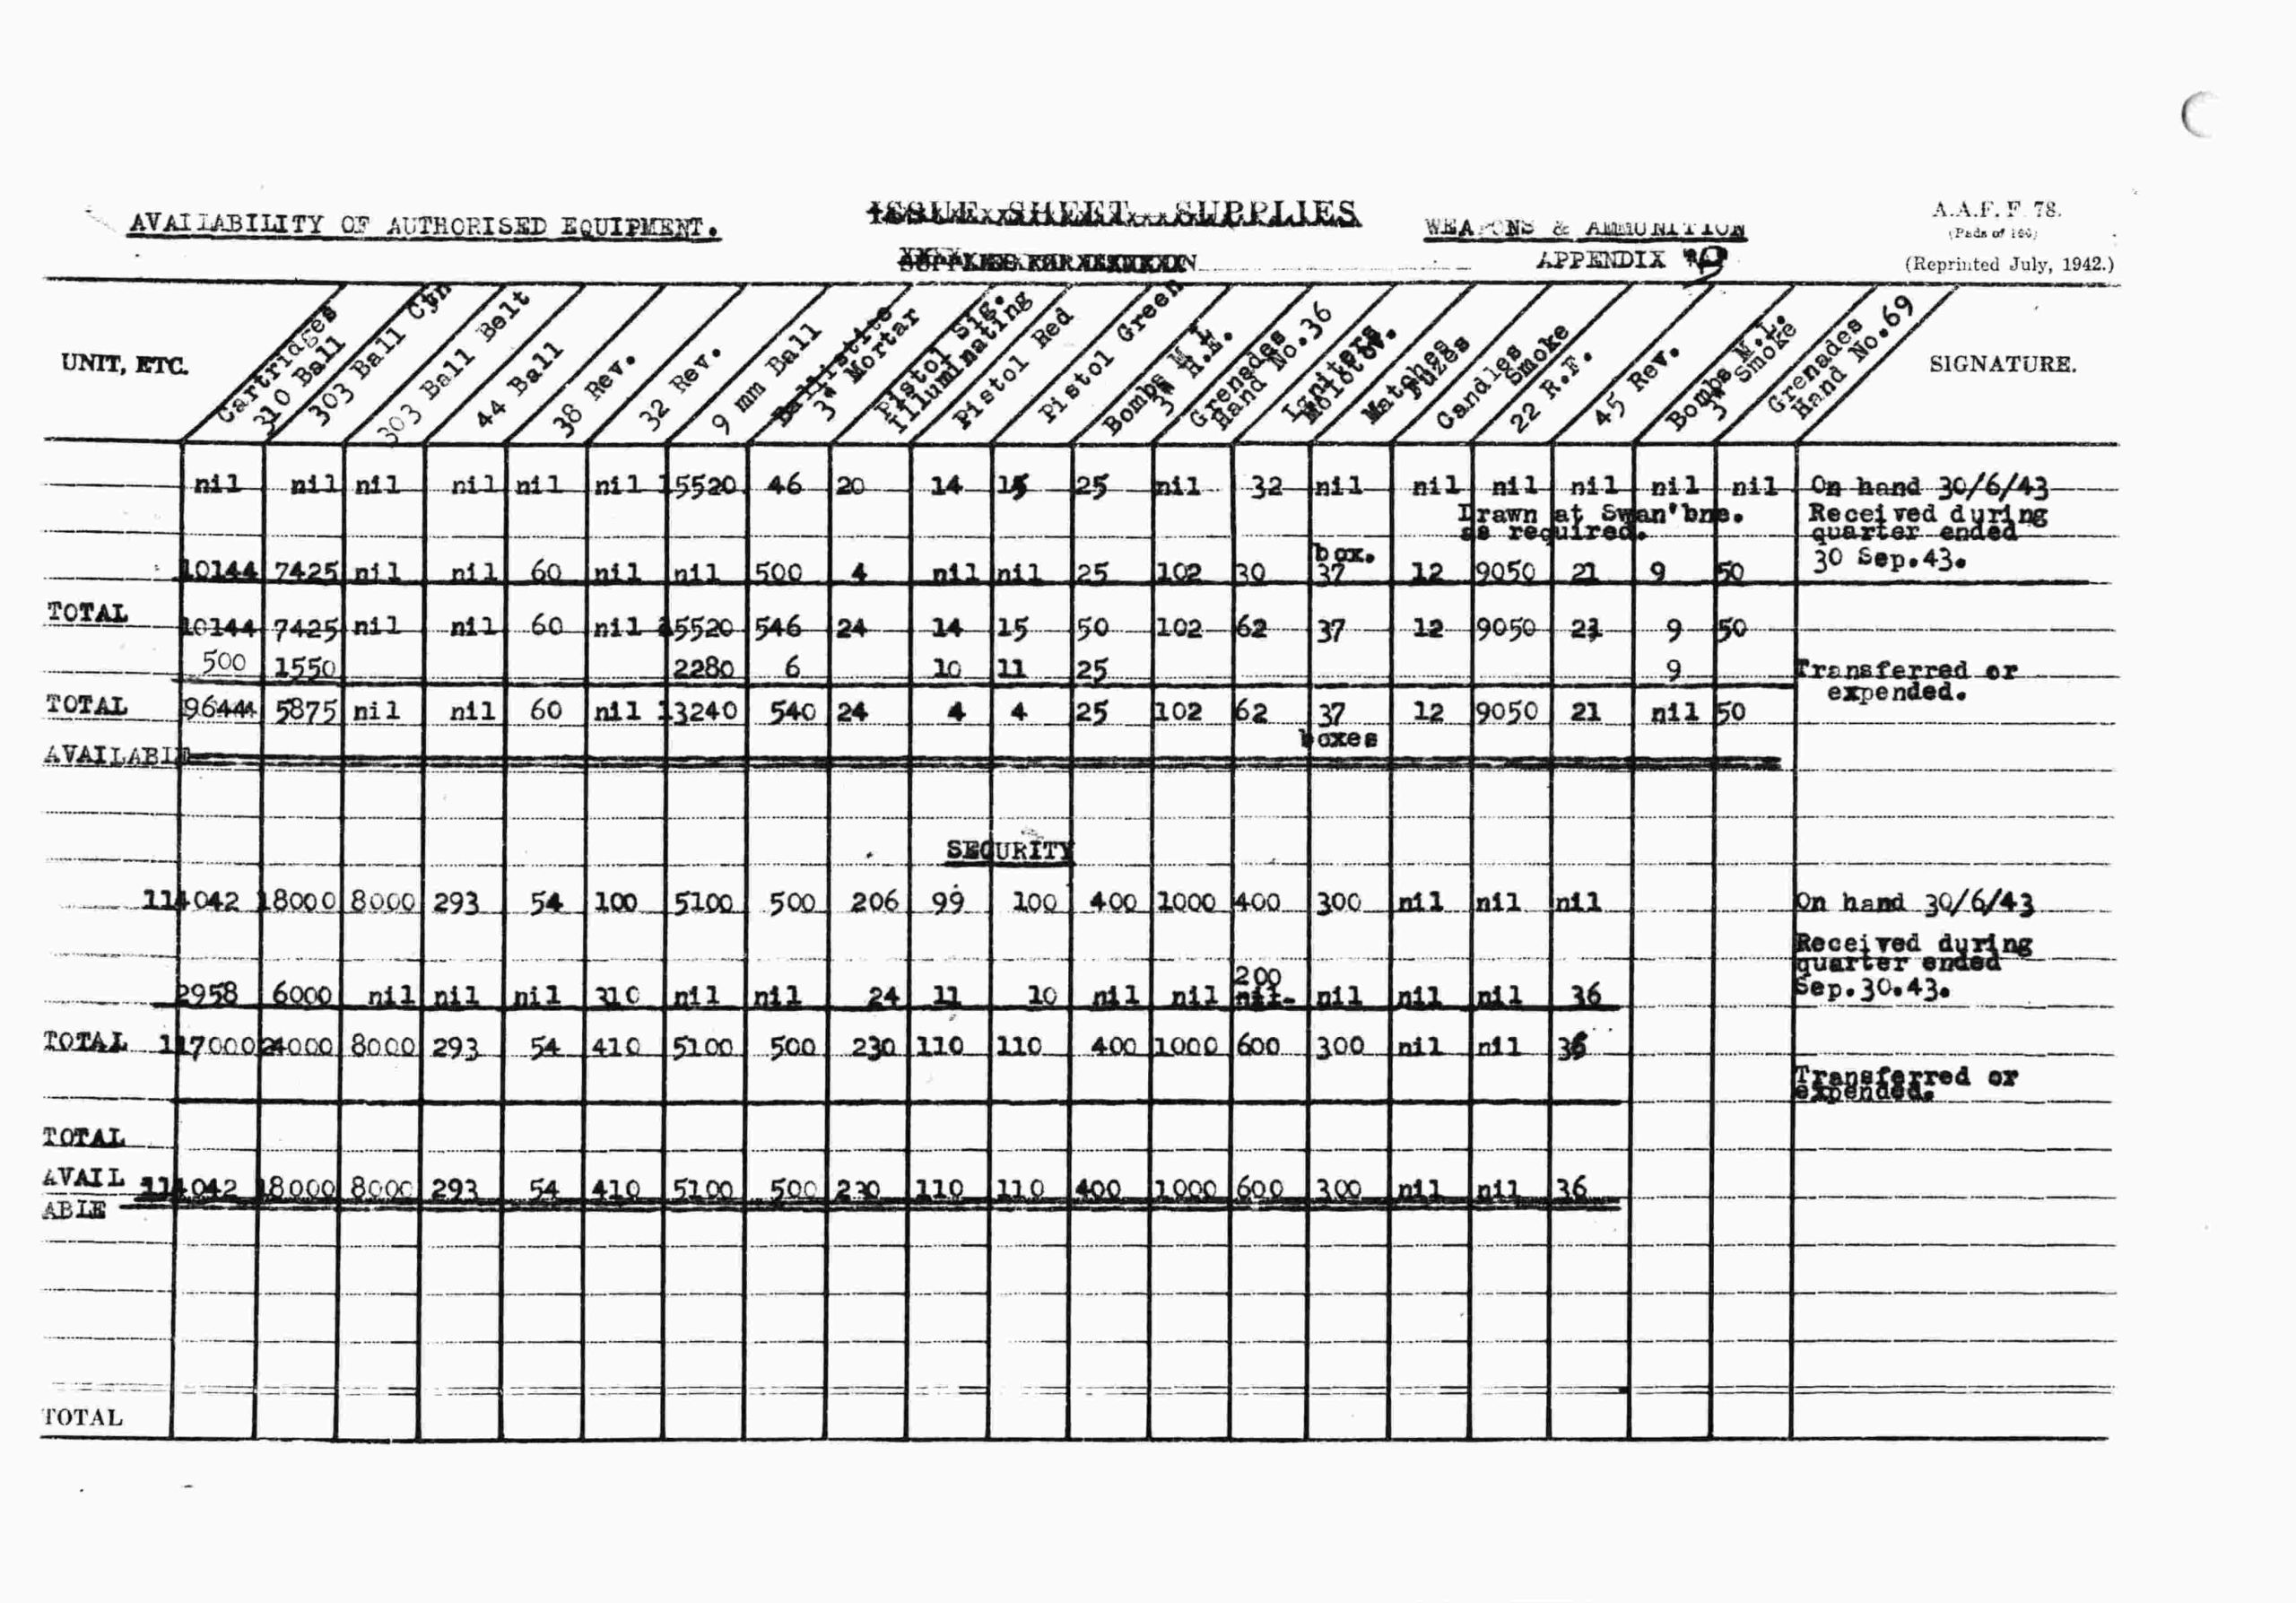 AVAILABILITY OF AUTHORISED EQUIPMENT.
ISSUE SHEET SUPPLIES
WEAPONS & AMMUNITION
APPENDIX
A.A.F. F 78.
(Pads of 100)
(Reprinted July, 1942.)
UNIT, ETC.
Cartridges 310 Ball
303 Ball Ctn
303 Ball Belt
44 Ball
38 Rev.
32 Rev.
9 mm Ball
Ballistite 3" Mortar
Pistol Sig. Illuminating
Pistol Red
Pistol Green
Bombs M L 3" H.E.
Grenades Hand No.36
Igniters Molotov.
Matches Fuzes
Candles Smoke
22 R.F.
45 Rev.
Bombs M.L. 3" Smoke
Grenades Hand No.69
SIGNATURE.
nil nil nil nil nil nil 15520 46 20 14 15 25 nil 32 nil nil nil nil nil nil On hand 30/6/43
Drawn at Swan'bne. Received during
as required. quarter ended
box. 30 Sep.43.
10144 7425 nil nil 60 nil nil 500 4 nil nil 25 102 30 37 12 9050 21 9 50
TOTAL 10144 7425 nil nil 60 nil 15520 546 24 14 15 50 102 62 37 12 9050 21 9 50
500 1550 2280 6 10 11 25 9 Transferred or
expended.
TOTAL 9644 5875 nil nil 60 nil 13240 540 24 4 4 25 102 62 37 12 9050 21 nil 50
boxes
AVAILABLE
SECURITY
114042 18000 8000 293 54 100 5100 500 206 99 100 400 1000 400 300 nil nil nil On hand 30/6/43
Received during
quarter ended
200
2958 6000 nil nil nil 310 nil nil 24 11 10 nil nil nil nil nil nil 36 Sep.30.43.
TOTAL 117000 24000 8000 293 54 410 5100 500 230 110 110 400 1000 600 300 nil nil 36
Transferred or
expended.
TOTAL
AVAIL 114042 18000 8000 293 54 410 5100 500 230 110 110 400 1000 600 300 nil nil 36
ABLE
TOTAL